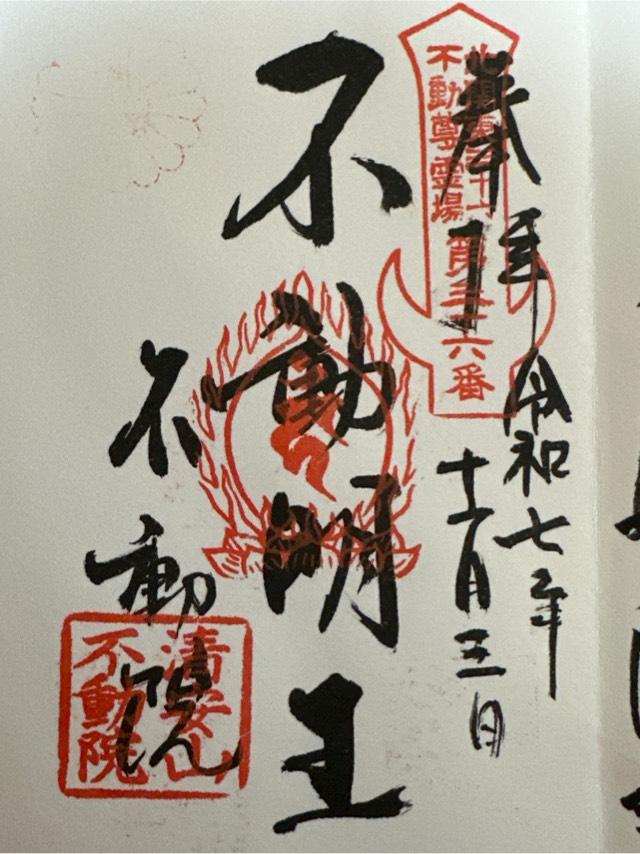 奉拝
令和七年
十二月三日
北関東三十六
不動尊霊場
第三十六番
不動明王
不動院
清安山
不動院